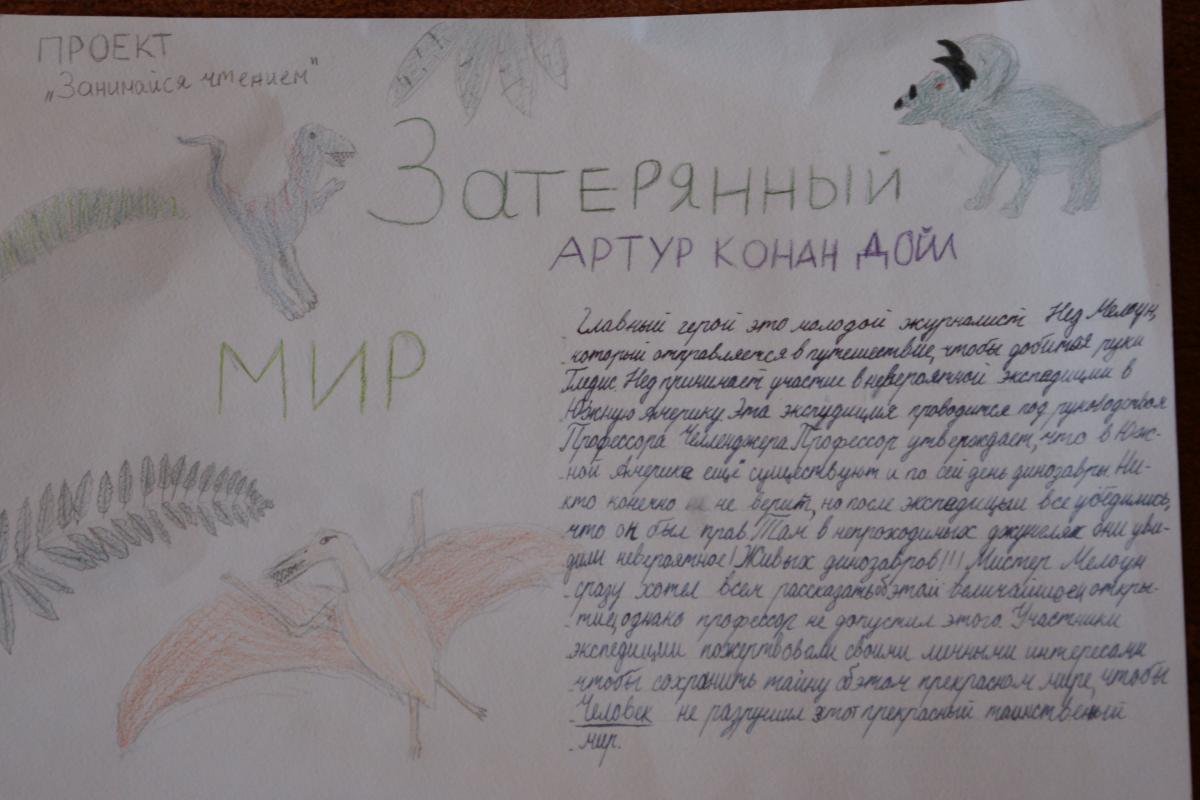 ПРОЕКТ
„Занимайся чтением"
ЗАТЕРЯННЫЙ
АРТУР КОНАН ДОЙЛ
МИР
Главный герой это молодой журналист Нед Мелоун,
который отправляется в путешествие, чтобы добится руки
Гледис Нед принимает участие в невероятной экспедиции в
Южную Америку. Эта экспудиция проводится под руководством
Профессора Челленджера. Профессор утверждает, что в Юж-
ной Америке ещё существуют и по сей день динозавры. Ни-
кто конечно не верит, но после экспедицыи все убедились,
что он был прав. Там в непроходимых джунглях они уви-
дили невероятное! Живых динозавров!!! Мистер Мелоун
сразу хотел всем рассказать обэтом величайшем откры-
тие, однако профессор не допустил этого. Участники
экспедиции пожертвовали своими личными интересами
чтобы сохранить тайну обэтом прекрасном мире, чтобы
Человек не разрушил этот прекрасный таинственый
мир.